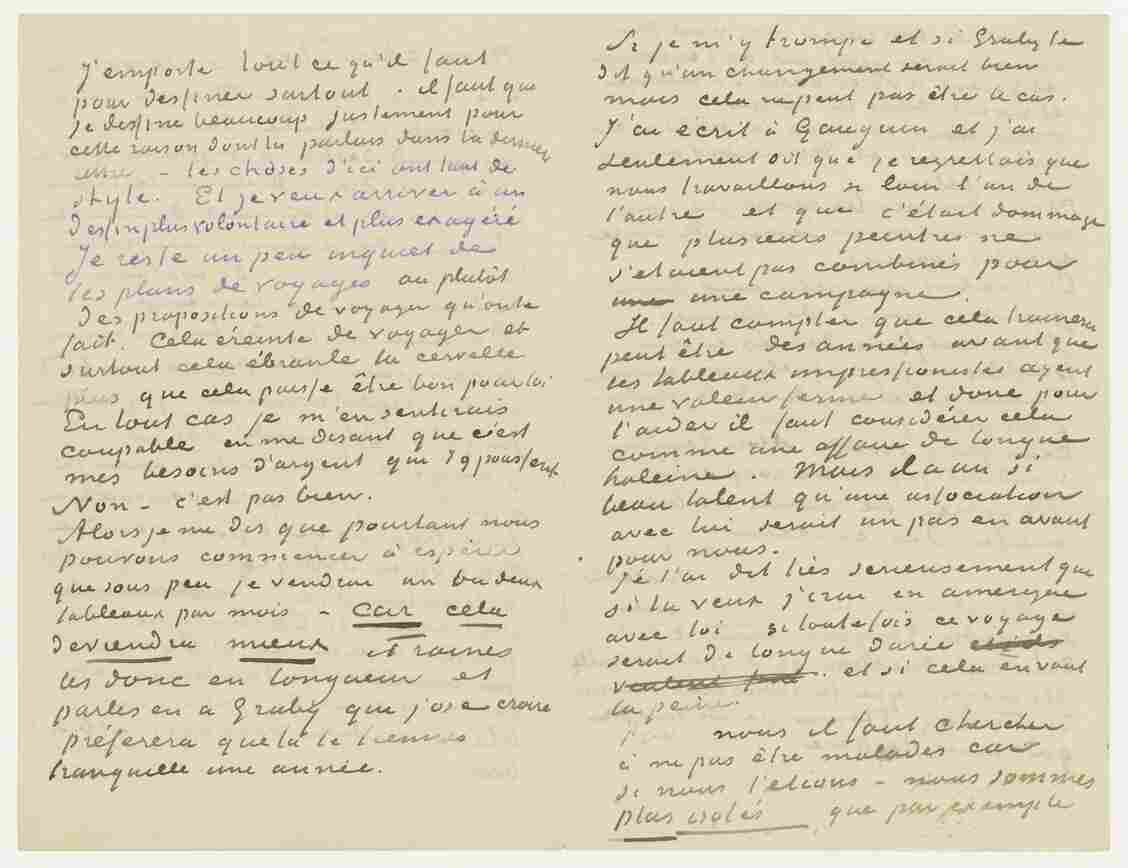 J'emporte tout ce qu'il faut
pour dessiner surtout. il faut que
je dessine beaucoup justement pour
cette raison dont tu parlais dans ta dernière
lettre – les choses d'ici ont tant de
style. Et je veux arriver à un
dessin plus volontaire et plus exagéré
Je reste un peu inquiet de
tes plans de voyages ou plutôt
des propositions de voyager qu'on te
fait. Cela éreinte de voyager et
surtout cela ébranle la cervelle
plus que cela puisse être bon pour toi
En tout cas je m'en sentirais
coupable en me disant que c'est
mes besoins d'argent qui t'y poussent
Non – c'est pas bien.
Alors je me dis que pourtant nous
pouvons commencer à espérer
que sous peu je vendrai un ou deux
tableaux par mois – car cela
deviendra mieux et traines
les donc en longueur et
parles en a Gruby que j'ose croire
préferera que tu te tiennes
tranquille une année.
Si je m'y trompe et si Gruby te
dit qu'un changement serait bien
mais cela ne peut pas être le cas.
J'ai écrit à Gauguin et j'ai
seulement dit que je regrettais que
nous travaillons si loin l'un de
l'autre et que c'était dommage
que plusieurs peintres ne
s'etaient pas combinés pour
une une campagne.
Il faut compter que cela trainera
peut être des années avant que
les tableaux impressionistes ayent
une valeur ferme et donc pour
l'aider il faut considérer cela
comme une affaire de longue
haleine. Mais il a un si
beau talent qu'une association
avec lui serait un pas en avant
pour nous.
Je t'ai dit très serieusement que
si tu veux j'irai en amerique
avec toi si toutefois ce voyage
serait de longue durée
et si cela en vaut
la peine.
nous il faut chercher
à ne pas être malades car
si nous l'etions – nous sommes
plus isolés que par exemple